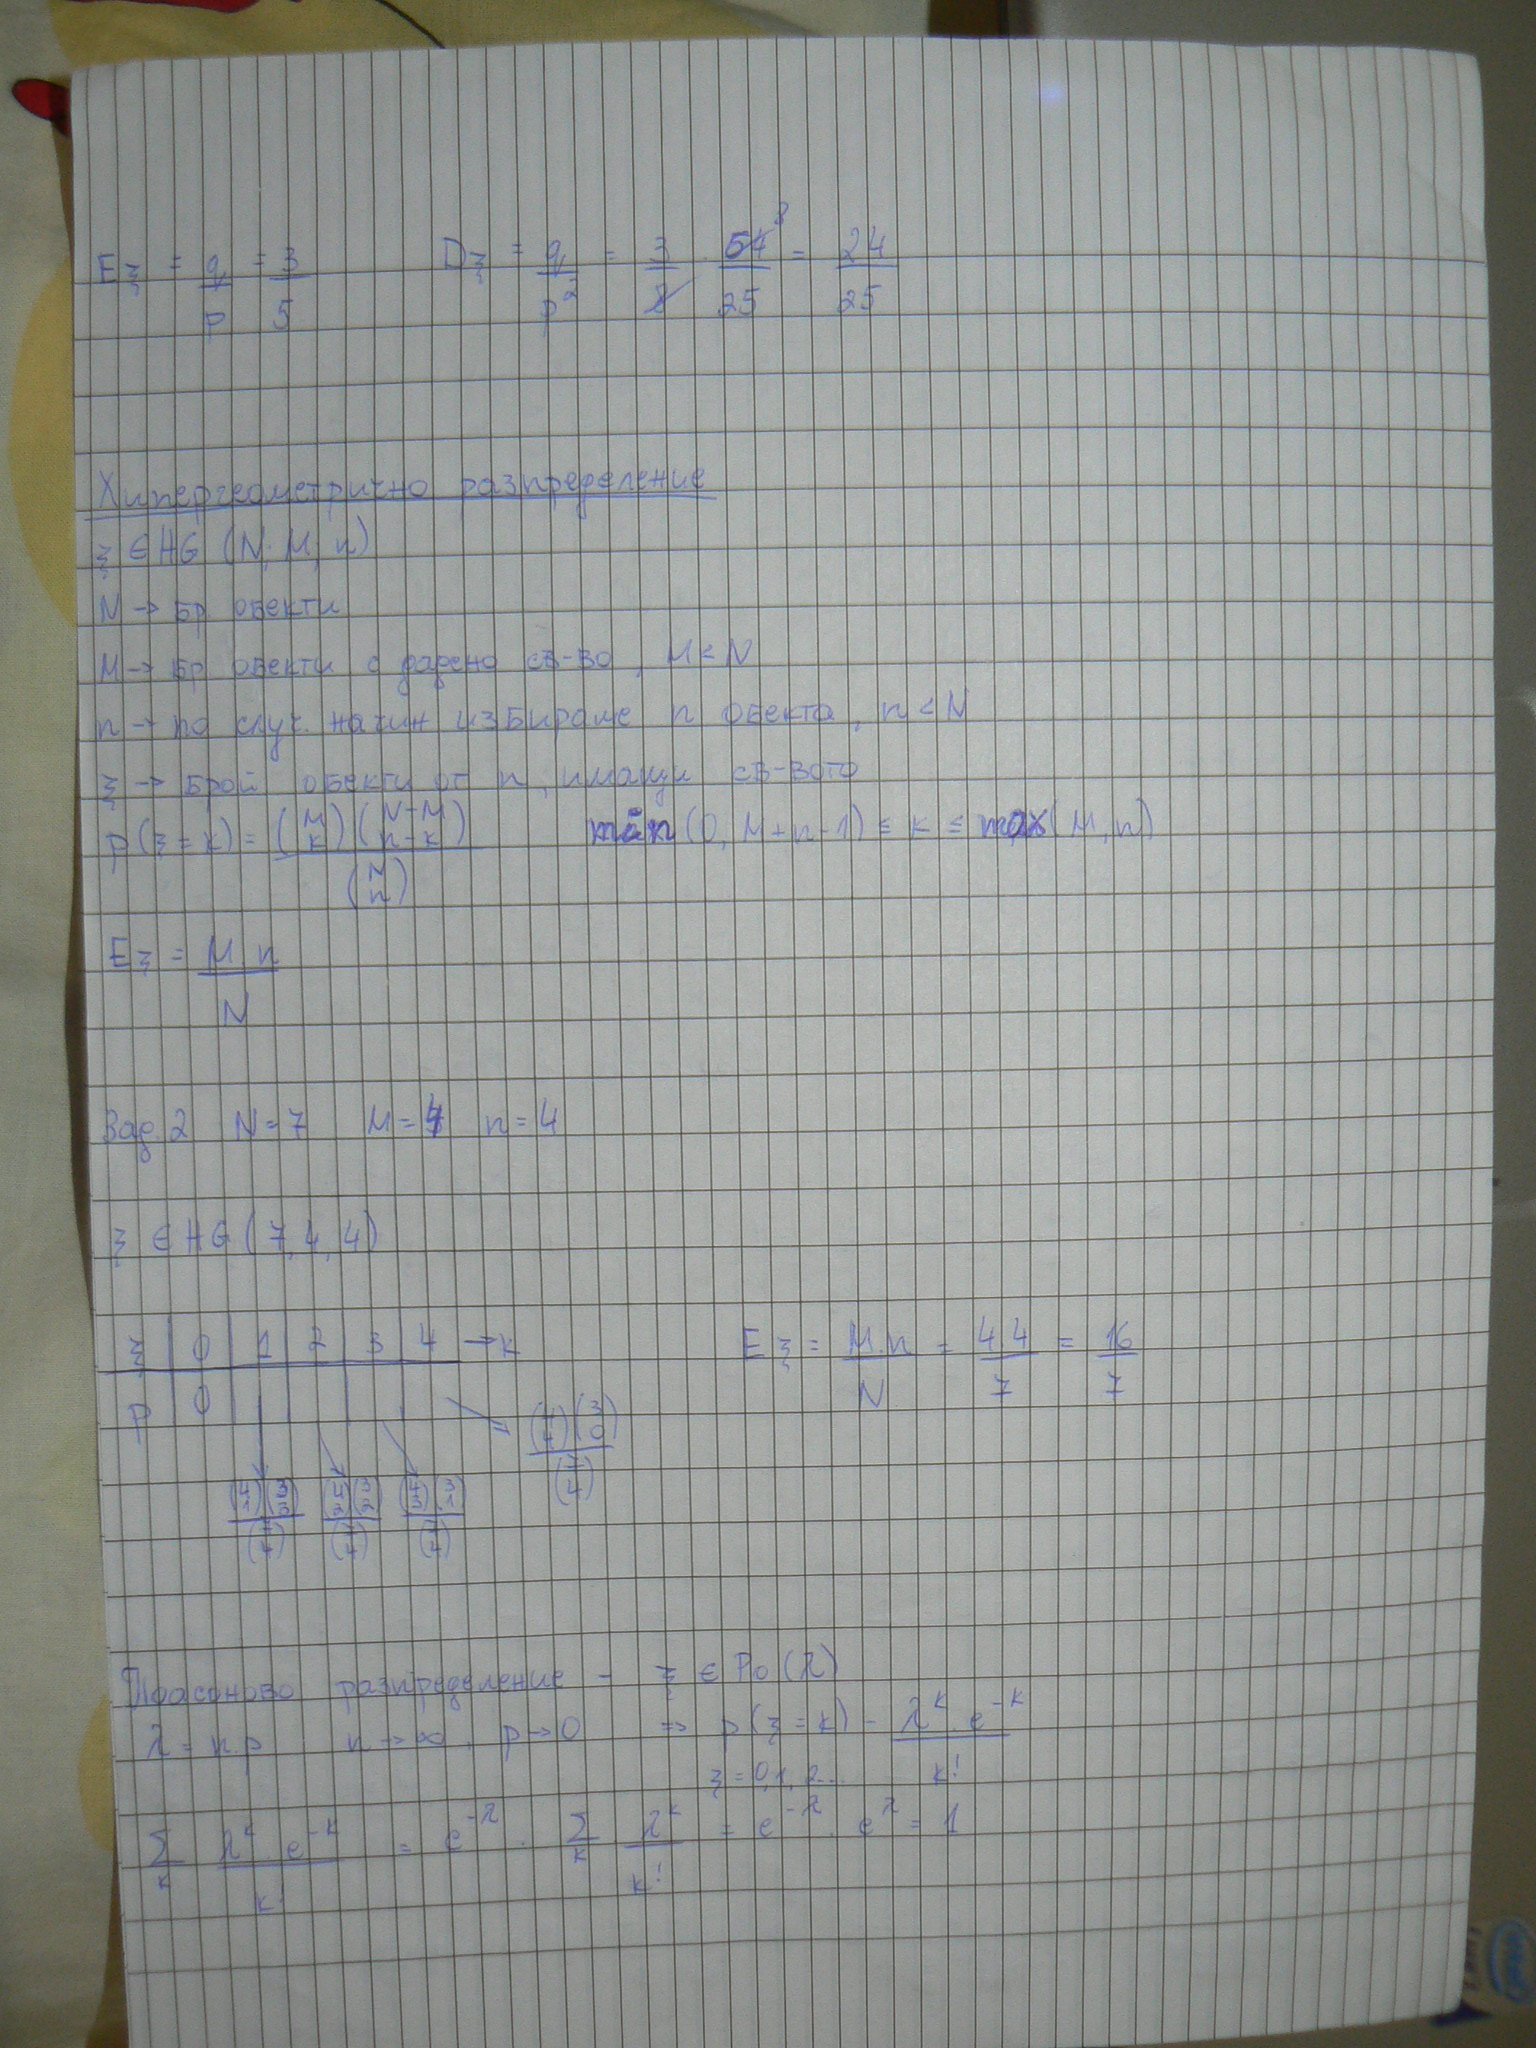 Eξ = q/p = 3/5    Dξ = q/p² = 3/8 · 64/25 = 24/25
8
Хипергеометрично разпределение
ξ ∈ HG (N, M, n)
N → бр. обекти
M → бр. обекти с дадено св-во, M < N
n → по случ. начин избираме n обекта, n < N
ξ → брой обекти от n, имащи св-вото
p(ξ = k) = (M k)(N-M n-k) / (N n)    (0, M + n - 1) ≤ k ≤ max(M, n)
Eξ = M.n / N
Зад. 2  N = 7  M = 4  n = 4
ξ ∈ HG (7, 4, 4)
ξ | 0 | 1 | 2 | 3 | 4 → k    Eξ = M.n / N = 4.4 / 7 = 16/7
p | 0
(4 4)(3 0) / (7 4)
(4 1)(3 3) / (7 4)  (4 2)(3 2) / (7 4)  (4 3)(3 1) / (7 4)
Поасоново разпределение – ξ ∈ Po(λ)
λ = n.p  n → ∞, p → 0  ⇒ p(ξ = k) = λ^k . e^-k / k!
ξ = 0, 1, 2...
Σ_k λ^k . e^-k / k! = e^-λ . Σ_k λ^k / k! = e^-λ . e^λ = 1